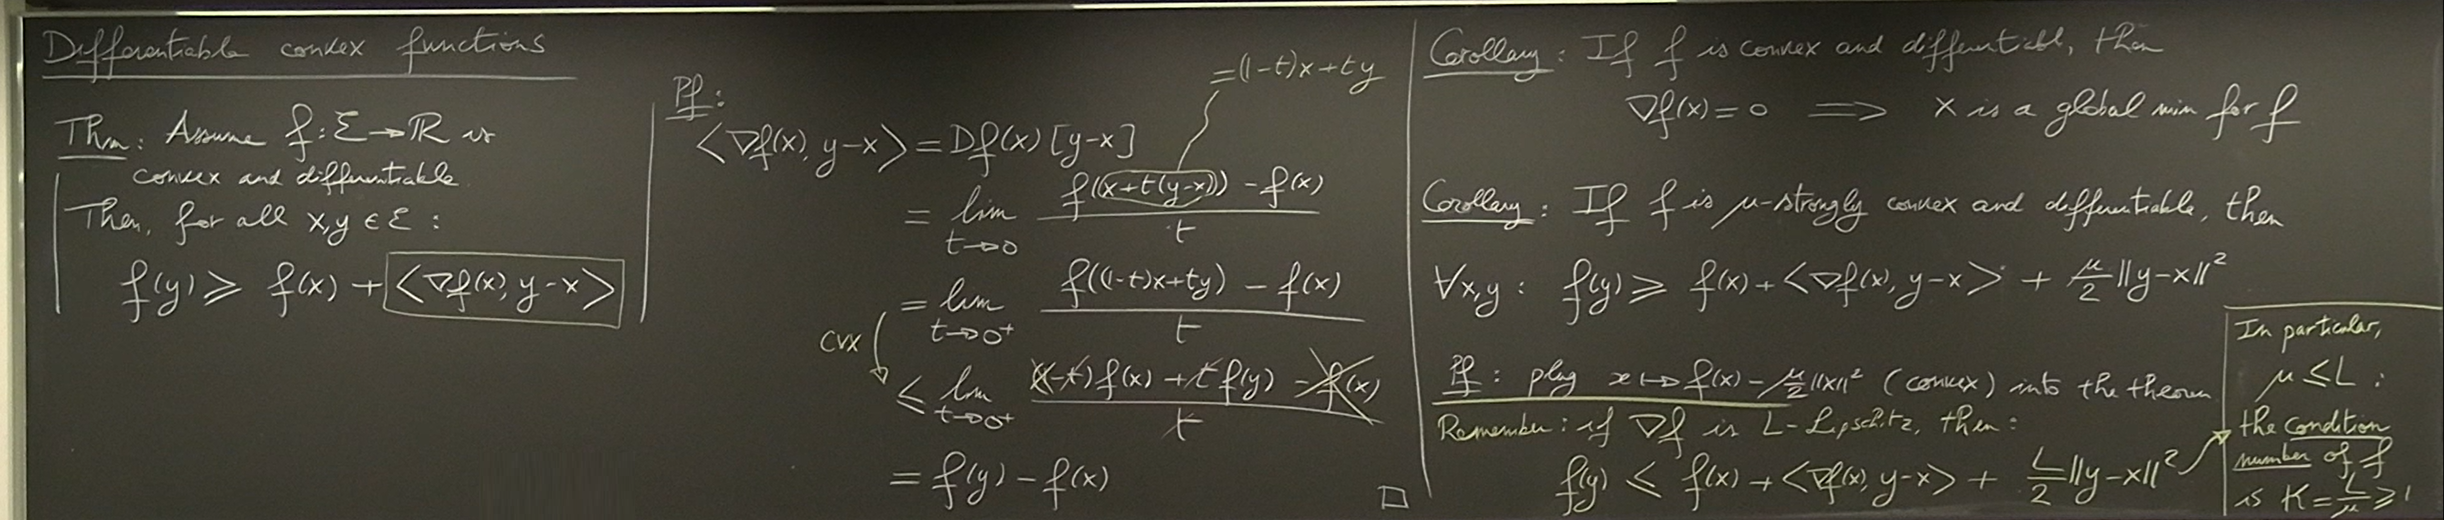 Differentiable convex functions
Thm: Assume f: ℰ → ℝ is
convex and differentiable.
Then, for all x, y ∈ ℰ :
f(y) ≥ f(x) + <∇f(x), y-x>
Pf:
= (1-t)x + ty
<∇f(x), y-x> = Df(x)[y-x]
= lim_{t→0} (f((x+t(y-x))) - f(x)) / t
= lim_{t→0⁺} (f((1-t)x+ty) - f(x)) / t
cvx
≤ lim_{t→0⁺} ((1-t)f(x) + t f(y) - f(x)) / t
= f(y) - f(x)
□
Corollary: If f is convex and differentiabl, then
∇f(x) = 0 ⟹ x is a global min for f
Corollary: If f is μ-strongly convex and differentiable, then
∀x,y : f(y) ≥ f(x) + <∇f(x), y-x> + μ/2 ||y-x||²
Pf: plug x ↦ f(x) - μ/2 ||x||² (convex) into the theorem
Remember: if ∇f is L-Lipschitz, then:
f(y) ≤ f(x) + <∇f(x), y-x> + L/2 ||y-x||²
In particular,
μ ≤ L :
the condition
number of f
is K = L/μ ≥ 1